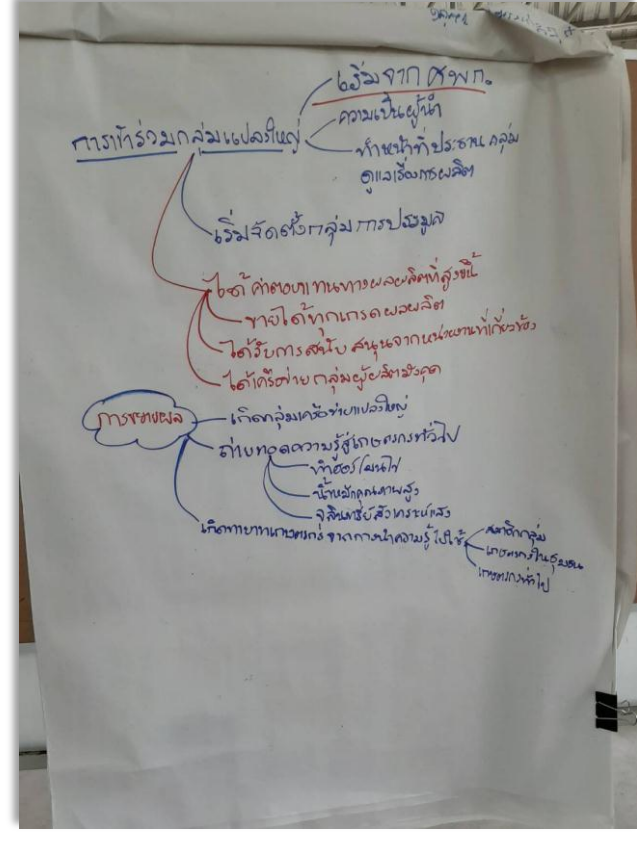 เริ่มจาก ศพก.
การเข้าร่วมกลุ่มแปลงใหญ่
ความเป็นผู้นำ
ทำหน้าที่ประธานกลุ่ม
ดูแลเรื่องการผลิต
เริ่มจัดตั้งกลุ่มการประมูล
ได้ค่าตอบแทนทางผลผลิตที่สูงขึ้น
ขายได้ทุกเกรดผลผลิต
ได้รับการสนับสนุนจากหน่วยงานที่เกี่ยวข้อง
ได้เครือข่ายกลุ่มผู้ผลิตมังคุด
การขยายผล
เกิดกลุ่มเครือข่ายแปลงใหญ่
ถ่ายทอดความรู้สู่เกษตรกรทั่วไป
ทำฮอร์โมนไข่
น้ำหมักคุณภาพสูง
จุลินทรีย์สังเคราะห์แสง
เกิดทายาทเกษตรกร จากการนำความรู้ไปใช้
สมาชิกกลุ่ม
เกษตรกรในชุมชน
เกษตรกรทั่วไป